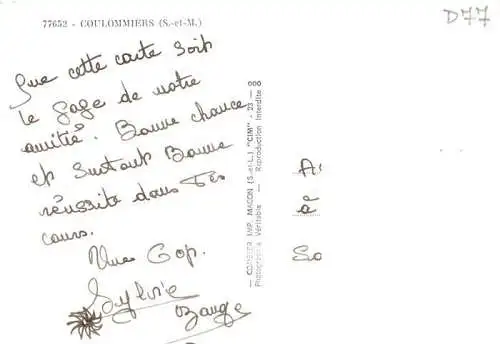 77652 - COULOMMIERS (S.-et-M.)
D77
Que cette carte soit
le gage de notre
amitié. Bonne chance
et surtout Bonne
réussite dans tes
cours.
Une Cop.
Sylvie
Bauge
— COMBIER IMP. MACON (S.-et-L.) "CIM" - 23 — 000
Photographie Véritable — Reproduction Interdite
A
à
So